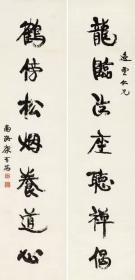 雲仁兄
龍臨法座聽禪偈
鶴傍松烟養道心
南海康有為